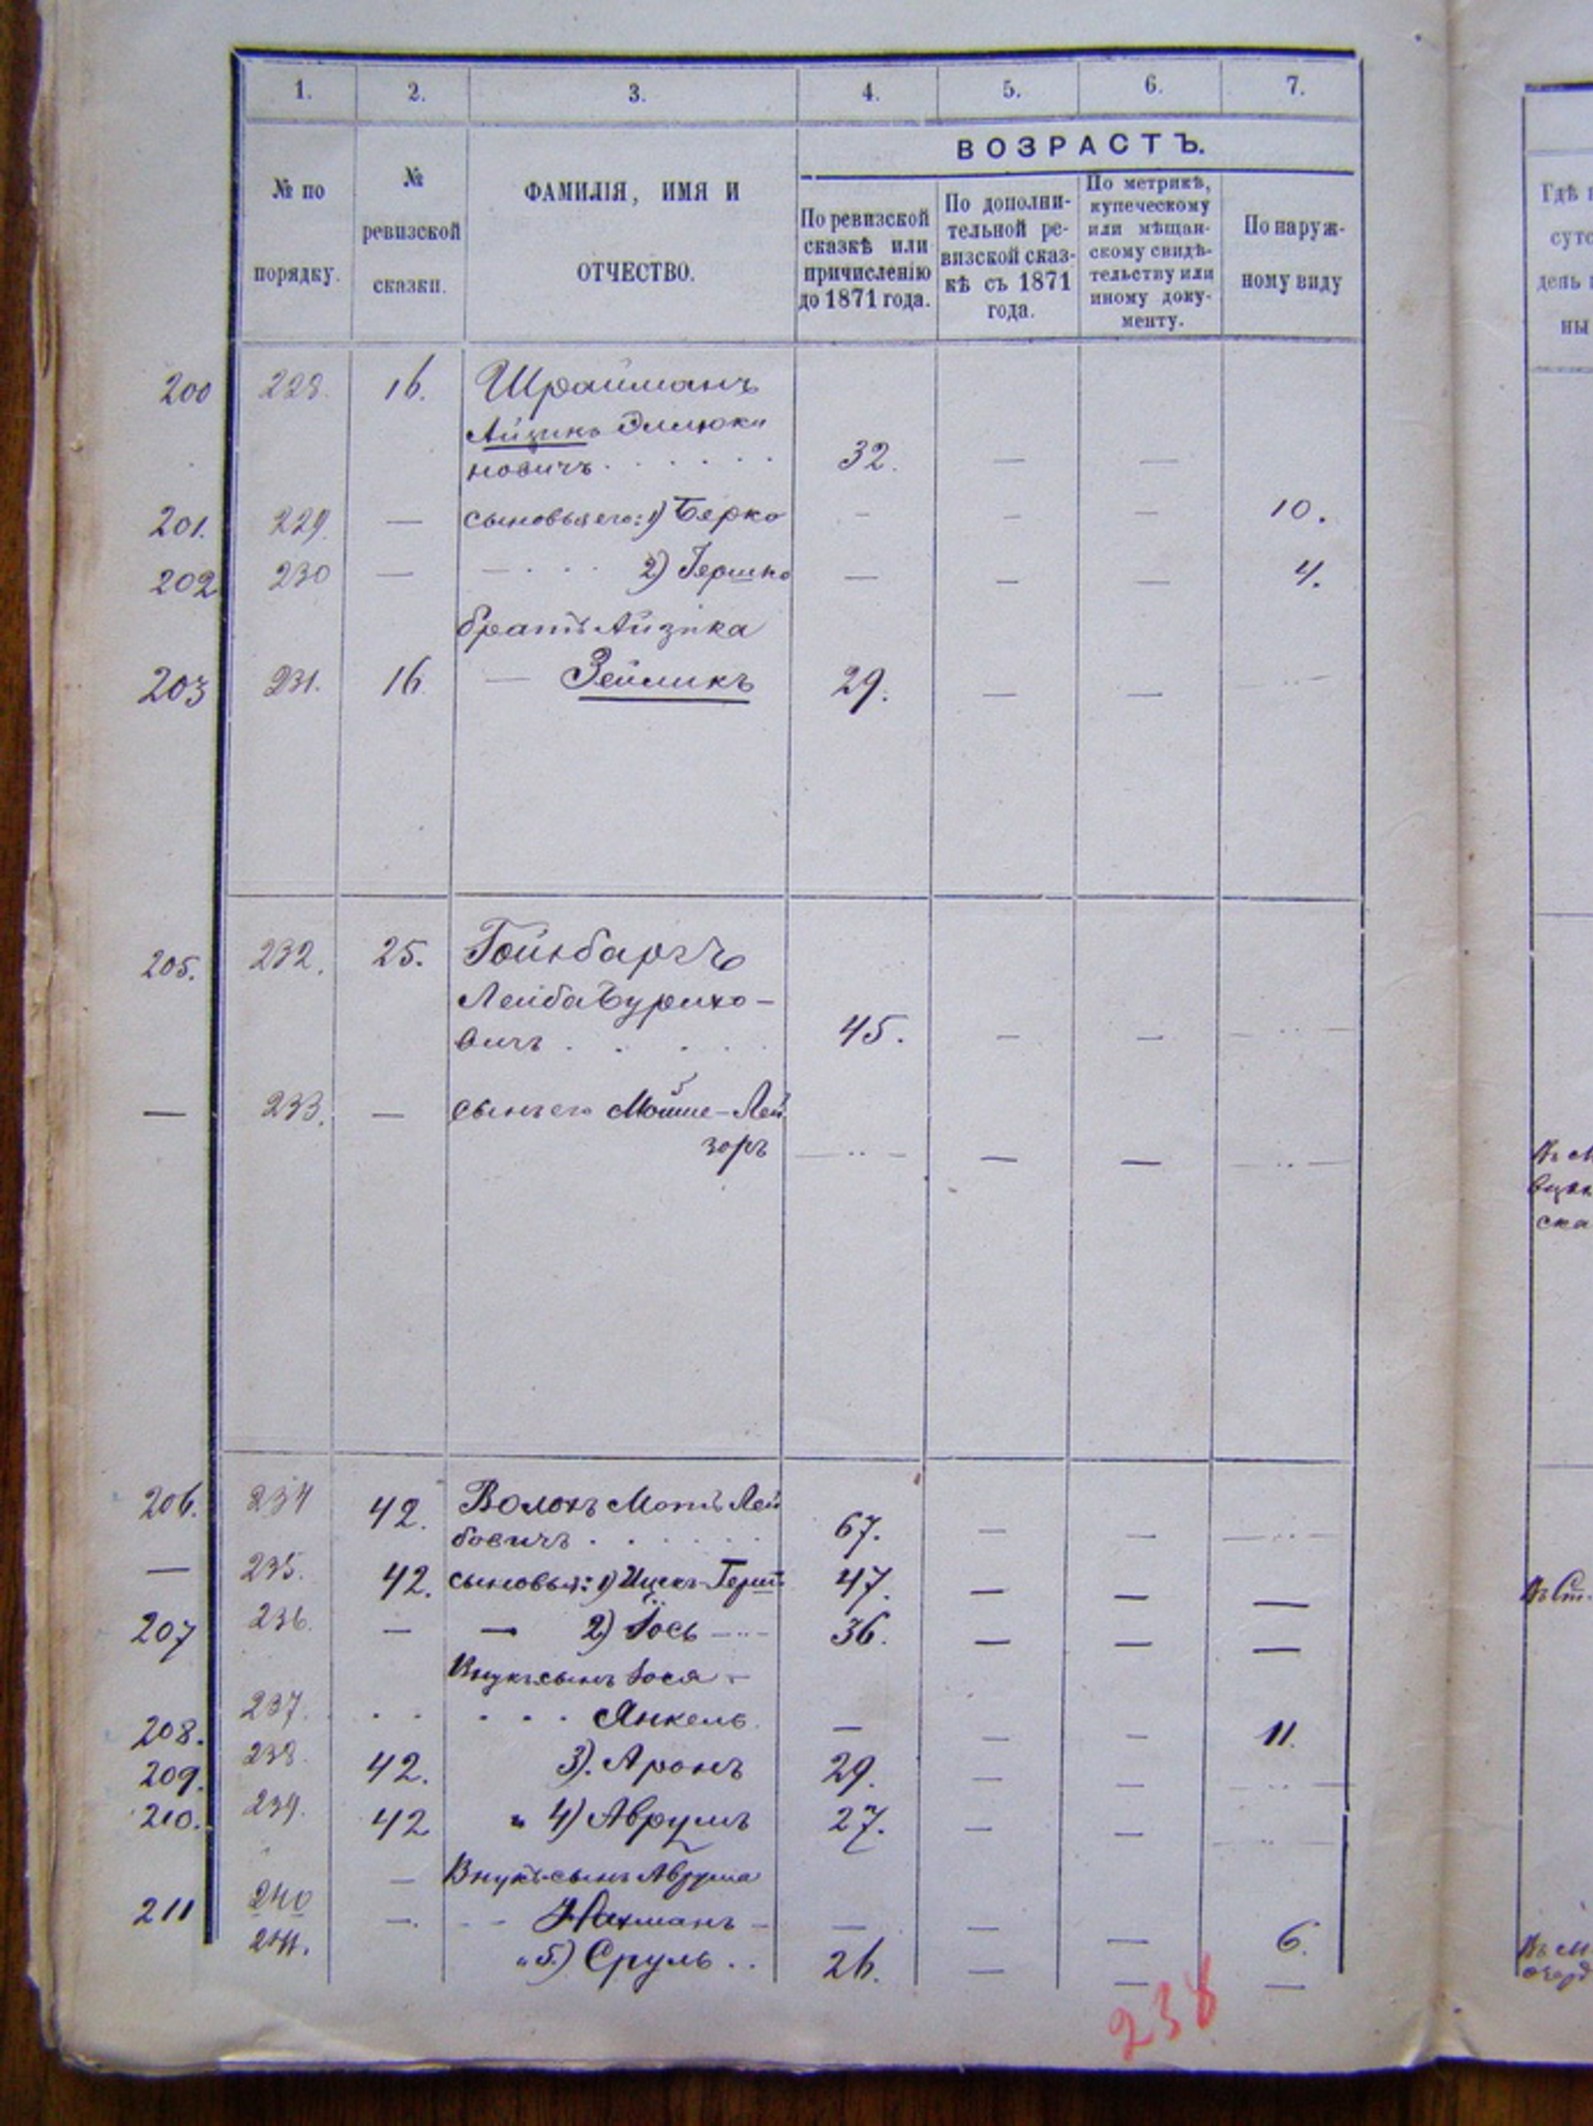 1. 2. 3. 4. 5. 6. 7.
№ по порядку.
№ ревизской сказки.
ФАМИЛІЯ, ИМЯ И
ОТЧЕСТВО.
ВОЗРАСТЪ.
По ревизской
сказкѣ или
причисленію
до 1871 года.
По дополни-
тельной ре-
визской сказ-
кѣ съ 1871
года.
По метрикѣ,
купеческому
или мѣщан-
скому свидѣ-
тельству или
иному доку-
менту.
По наруж-
ному виду
200 228. 16. Шрайманъ
Айзикъ
новичъ . . . . . . 32. — —
201. 229. — сыновья его: 1) Берко - — — 10.
202 230 — — . . . 2) Гершко — — — 4.
братъ Айзика
203 231. 16 — Зейликъ 29. — — — .. —
205. 232. 25. Гойнбаргъ
Лейба Бурихо-
вичъ . . . . . 45. — — — .. —
— 233. — сынъ его Мойше-Лей
зоръ — .. — — — — .. —
206. 234 42. Волохъ Моть Лей
бовичъ . . . . . . 67. — — — .. —
— 235. 42. сыновья: 1) Ицекъ-Герш 47. — — —
207 236. — — 2) Іось — .. — 36. — — —
Внукъ сынъ Іося -
208. 237. . . . . . Янкель. — — — 11.
209. 238. 42. 3). Аронъ 29. — — — .. —
210. 239. 42 " 4) Аврумъ 27. — — — .. —
— Внукъ-сынъ Аврума
211 240 —. - - Нахманъ - — — — 6.
241. " 5) Сруль . . 26. — — —
238
Гдѣ
сутс
день
ны
ска